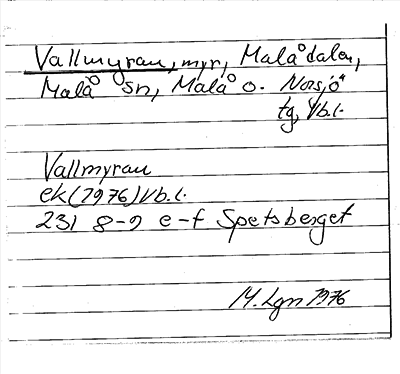 Vallmyran, myr, Malådalen,
Malå sn, Malå o. Norsjö
tg, Vb.l.
Vallmyran
ek (1976) Vb.l.
231 8-9 e-f Spetsberget
M. Lgn 1976